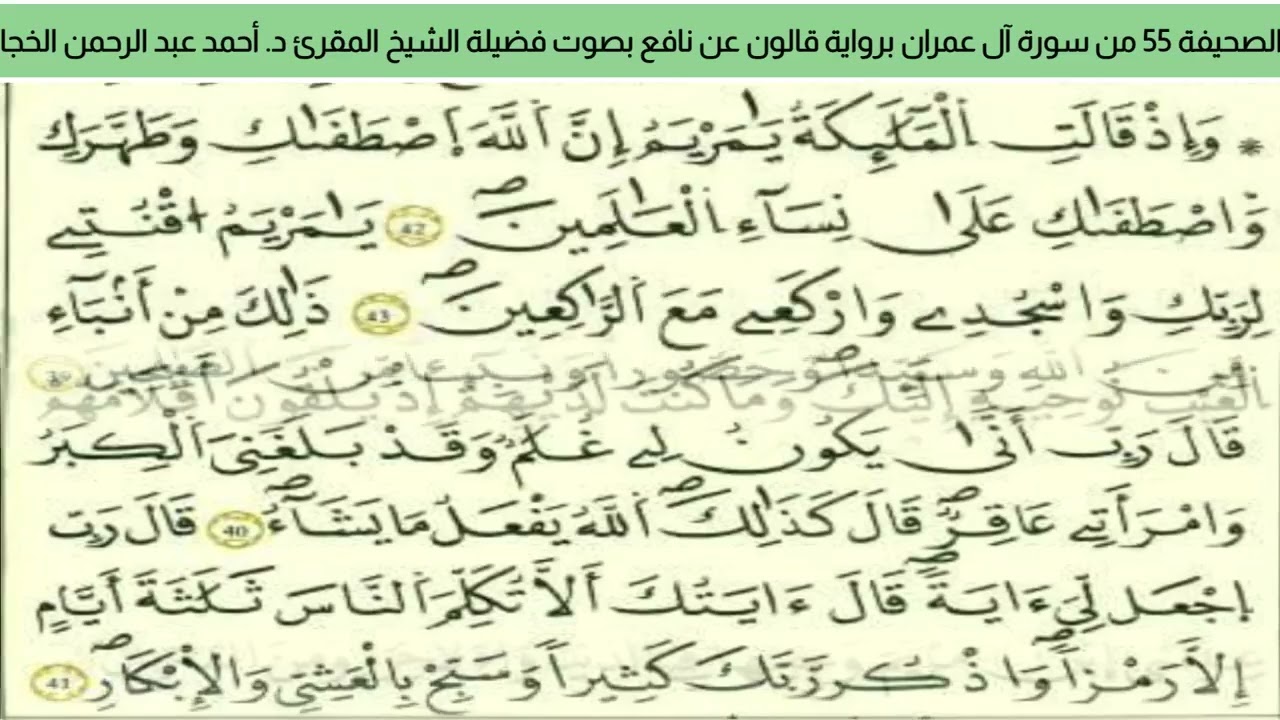 الصحيفة 55 من سورة آل عمران برواية قالون عن نافع بصوت فضيلة الشيخ المقرئ د. أحمد عبد الرحمن الخجا
* وَإِذْ قَالَتِ اِ۬لْمَلَٰٓئِكَةُ يَٰمَرْيَمُ إِنَّ اَ۬للَّهَ اَ۪صْطَفَىٰكِ وَطَهَّرَكِ
وَاصْطَفَىٰكِ عَلَىٰ نِسَآءِ اِ۬لْعَٰلَمِينَۖ 42 يَٰمَرْيَمُ اُ۟قْنُتِے
لِرَبِّكِ وَاسْجُدِے وَارْكَعِے مَعَ اَ۬لرَّٰكِعِينَۖ 43 ذَٰلِكَ مِنْ أَنۢبَآءِ
اِ۬لْغَيْبِ نُوحِيهِ إِلَيْكَ وَمَا كُنتَ لَدَيْهِمُۥٓ إِذْ يُلْقُونَ أَقْلَٰمَهُمُۥٓ
قَالَ رَبِّ أَنَّىٰ يَكُونُ لِے غُلَٰمٌ وَقَدْ بَلَغَنِيَ اَ۬لْكِبَرُ
وَامْرَأَتِے عَاقِرٌۖ قَالَ كَذَٰلِكَۖ اَ۬للَّهُ يَفْعَلُ مَا يَشَآءُۖ 40 قَالَ رَبِّ
اِ۪جْعَل لِّيَ ءَايَةٗۖ قَالَ ءَايَتُكَ أَلَّا تُكَلِّمَ اَ۬لنَّاسَ ثَلَٰثَةَ أَيَّامٍ
إِلَّا رَمْزاٗۖ وَاذْكُر رَّبَّكَ كَثِيراٗ وَسَبِّحْ بِالْعَشِيِّ وَالِابْكٰ۪رِۖ 41